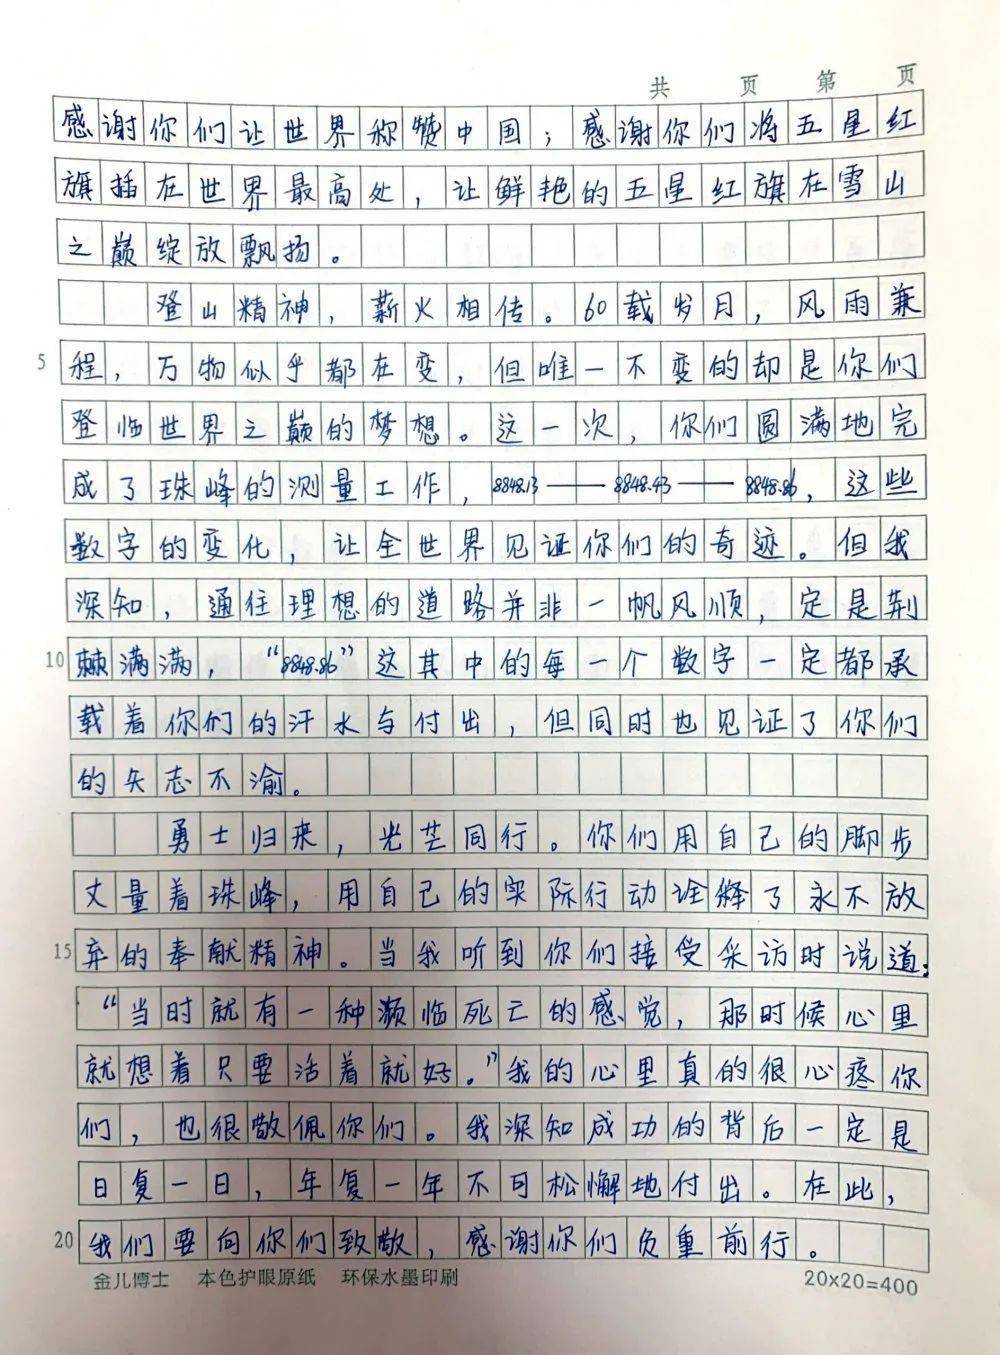 共 页 第 页
感谢你们让世界称赞中国；感谢你们将五星红
旗插在世界最高处，让鲜艳的五星红旗在雪山
之巅绽放飘扬。
登山精神，薪火相传。60载岁月，风雨兼
5 程，万物似乎都在变，但唯一不变的却是你们
登临世界之巅的梦想。这一次，你们圆满地完
成了珠峰的测量工作，8848.13——8848.43——8848.86，这些
数字的变化，让全世界见证你们的奇迹。但我
深知，通往理想的道路并非一帆风顺，定是荆
10 棘满满，“8848.86”这其中的每一个数字一定都承
载着你们的汗水与付出，但同时也见证了你们
的矢志不渝。
勇士归来，光芒同行。你们用自己的脚步
丈量着珠峰，用自己的实际行动诠释了永不放
15 弃的奉献精神。当我听到你们接受采访时说道：
“当时就有一种濒临死亡的感觉，那时候心里
就想着只要活着就好。”我的心里真的很心疼你
们，也很敬佩你们。我深知成功的背后一定是
日复一日，年复一年不可松懈地付出。在此，
20 我们要向你们致敬，感谢你们负重前行。
金儿博士 本色护眼原纸 环保水墨印刷 20×20=400